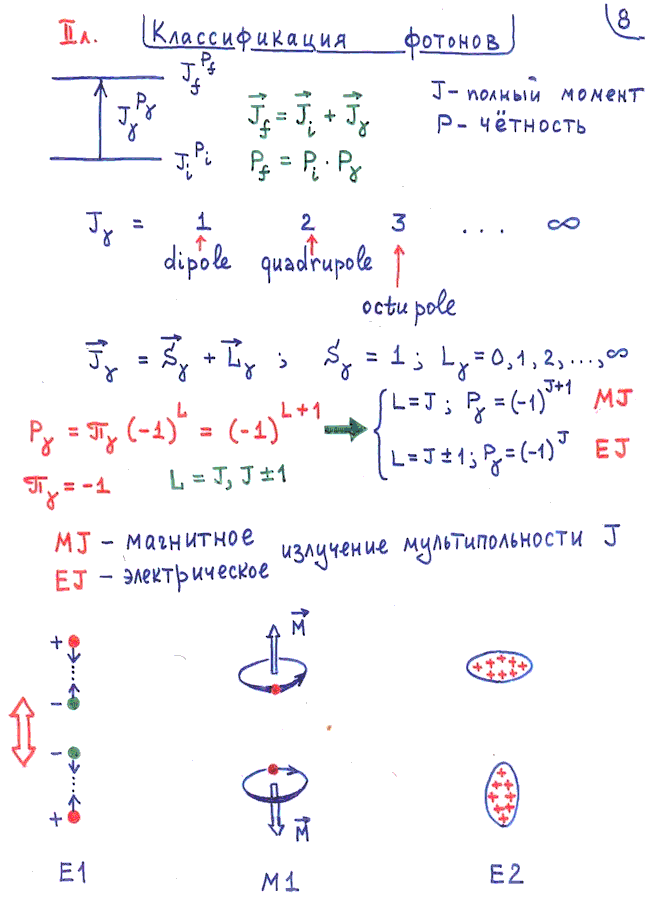 IIл. Классификация фотонов 8
J_f^{P_f}
J_γ^{P_γ}
J_i^{P_i}
J⃗_f = J⃗_i + J⃗_γ
P_f = P_i · P_γ
J - полный момент
P - чётность
J_γ = 1 2 3 ... ∞
dipole quadrupole
octupole
J⃗_γ = S⃗_γ + L⃗_γ ; S_γ = 1 ; L_γ = 0, 1, 2, ..., ∞
P_γ = π_γ (-1)^L = (-1)^{L+1}
π_γ = -1 L = J, J±1
L = J ; P_γ = (-1)^{J+1} MJ
L = J±1 ; P_γ = (-1)^J EJ
MJ - магнитное
EJ - электрическое
излучение мультипольности J
+
-
-
+
M⃗
M⃗
+ + + + + + + +
+ + + + + + + +
E1 M1 E2